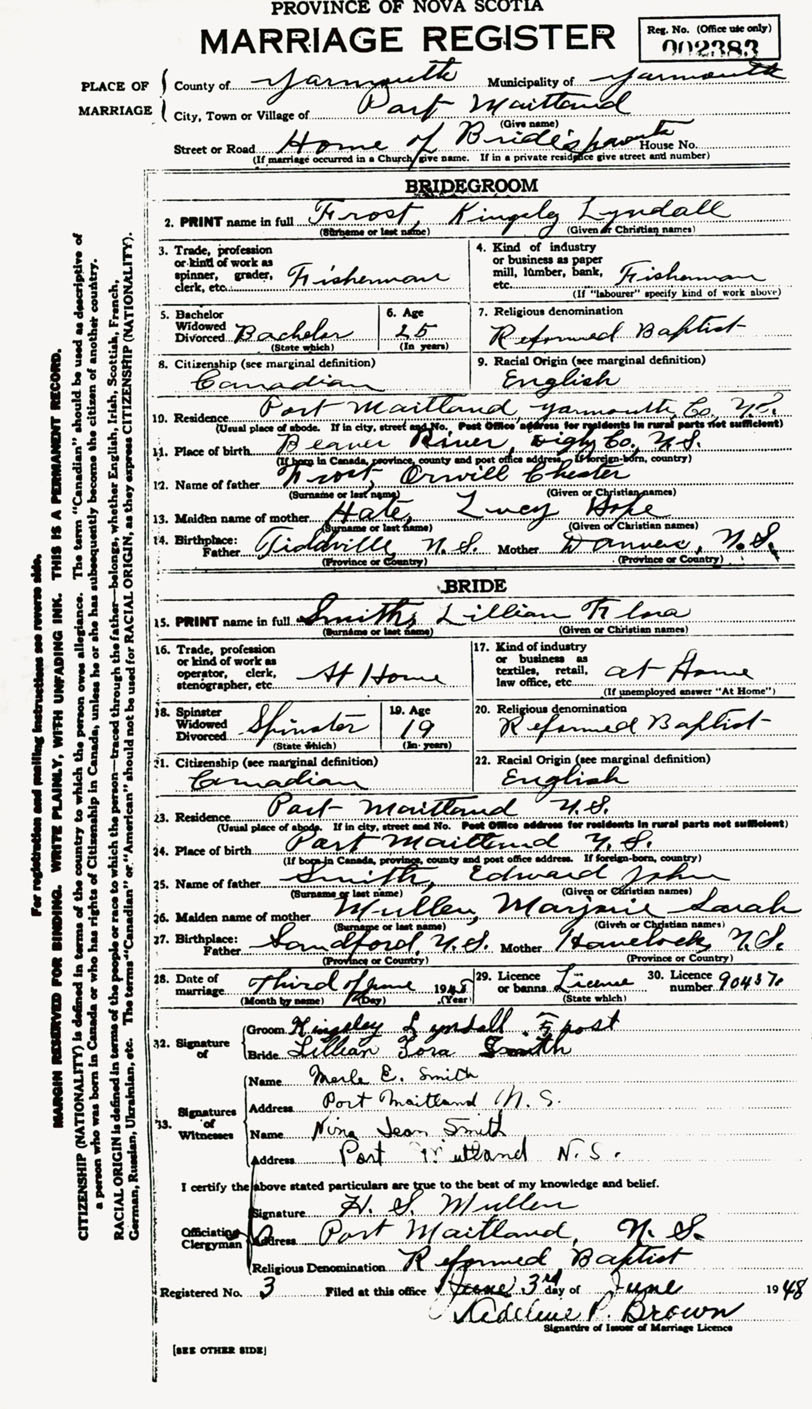 PROVINCE OF NOVA SCOTIA
MARRIAGE REGISTER
Reg. No. (Office use only)
002383
PLACE OF MARRIAGE
County of Yarmouth Municipality of Yarmouth
City, Town or Village of Port Maitland
(Give name)
Street or Road Home of Bride's parents House No.
(If marriage occurred in a Church give name. If in a private residence give street and number)
BRIDEGROOM
2. PRINT name in full Frost, Kingsley Lyndall
(Surname or last name) (Given or Christian names)
3. Trade, profession or kind of work as spinner, grader, clerk, etc. Fisherman
4. Kind of industry or business as paper mill, lumber, bank, etc. Fisherman
(If "labourer" specify kind of work above)
5. Bachelor Widowed Divorced Bachelor
(State which)
6. Age 25
(In years)
7. Religious denomination
Reformed Baptist
8. Citizenship (see marginal definition)
Canadian
9. Racial Origin (see marginal definition)
English
10. Residence Port Maitland Yarmouth Co. N.S.
(Usual place of abode. If in city, street and No. Post Office address for residents in rural parts not sufficient)
11. Place of birth Beaver River, Digby Co., N.S.
(If born in Canada, province, county and post office address. If foreign-born, country)
12. Name of father Frost, Orvill Chester
(Surname or last name) (Given or Christian names)
13. Maiden name of mother Lucy
(Surname or last name) (Given or Christian names)
14. Birthplace: Father Tiddville, N.S. Mother Danvers, N.S.
(Province or Country) (Province or Country)
BRIDE
15. PRINT name in full Smith, Lillian Flora
(Surname or last name) (Given or Christian names)
16. Trade, profession or kind of work as operator, clerk, stenographer, etc. At Home
17. Kind of industry or business as textiles, retail, law office, etc. at Home
(If unemployed answer "At Home")
18. Spinster Widowed Divorced Spinster
(State which)
19. Age 19
(In years)
20. Religious denomination
Reformed Baptist
21. Citizenship (see marginal definition)
Canadian
22. Racial Origin (see marginal definition)
English
23. Residence Port Maitland N.S.
(Usual place of abode. If in city, street and No. Post Office address for residents in rural parts not sufficient)
24. Place of birth Port Maitland N.S.
(If born in Canada, province, county and post office address. If foreign-born, country)
25. Name of father Smith, Edward John
(Surname or last name) (Given or Christian names)
26. Maiden name of mother Mullen, Marjorie Sarah
(Surname or last name) (Given or Christian names)
27. Birthplace: Father Sandford, N.S. Mother Havelock, N.S.
(Province or Country) (Province or Country)
28. Date of marriage Third of June 1948
(Month by name) (Day) (Year)
29. Licence or banns License
(State which)
30. Licence number 90437
32. Signature of
Groom Kingsley Lyndall Frost
Bride Lillian Smith
33. Signatures of Witnesses
Name Merle E. Smith
Address Port Maitland N.S.
Name Nina Jean Smith
Address Port Maitland N.S.
I certify the above stated particulars are true to the best of my knowledge and belief.
Officiating Clergyman
Signature H. S. Mullen
Address Port Maitland, N.S.
Religious Denomination Reformed Baptist
Registered No. 3 Filed at this office June 3rd day of June 1948
P. Brown
Signature of Issuer of Marriage Licence
[SEE OTHER SIDE]
For registration and mailing instructions see reverse side.
MARGIN RESERVED FOR BINDING. WRITE PLAINLY, WITH UNFADING INK. THIS IS A PERMANENT RECORD.
CITIZENSHIP (NATIONALITY) is defined in terms of the country to which the person owes allegiance. The term "Canadian" should be used as descriptive of
a person who was born in Canada or who has rights of Citizenship in Canada, unless he or she has subsequently become the citizen of another country.
RACIAL ORIGIN is defined in terms of the people or race to which the person—traced through the father—belongs, whether English, Irish, Scottish, French,
German, Russian, Ukrainian, etc. The terms "Canadian" or "American" should not be used for RACIAL ORIGIN, as they express CITIZENSHIP (NATIONALITY).